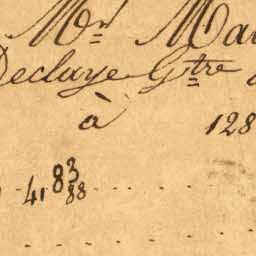 Mr Mar
Declaye Gtre
à 128
41 83
88